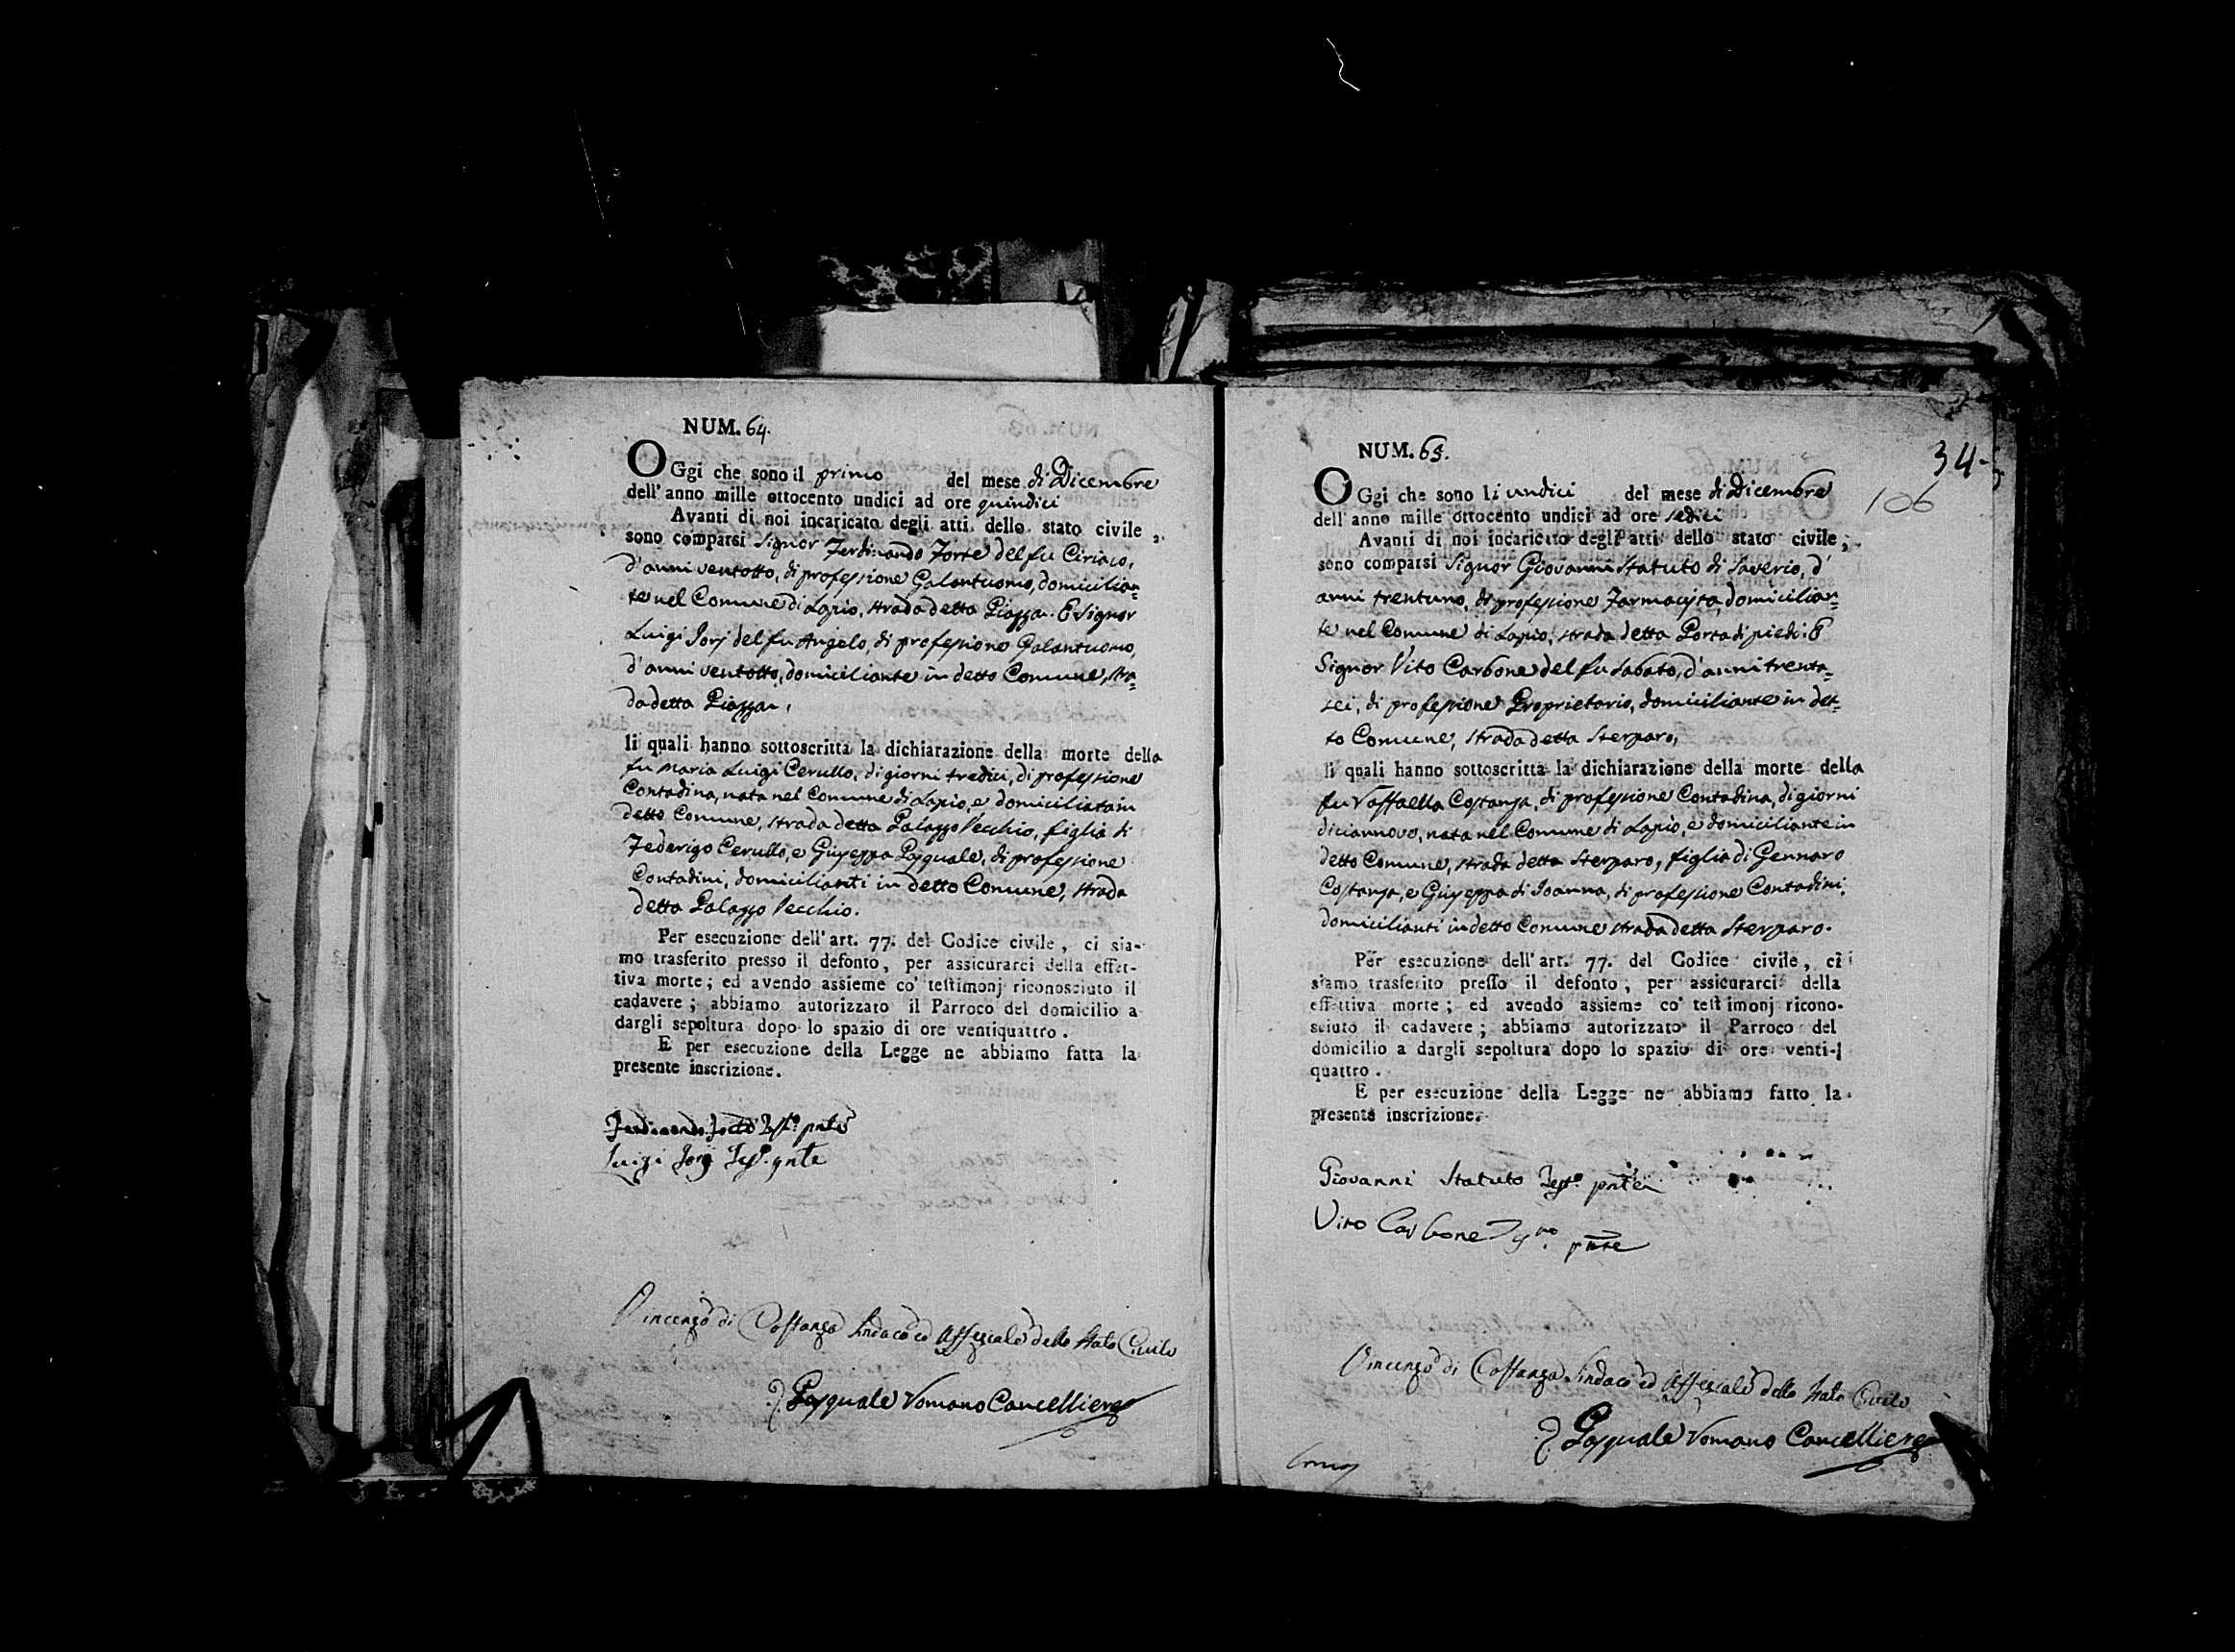 NUM. 64.
OGgi che sono il primo del mese di Dicembre
dell'anno mille ottocento undici ad ore quindici
Avanti di noi incaricato degli atti dello stato civile,
sono comparsi Signor Ferdinando Forte del fu Ciriaco,
d'anni ventotto, di professione Galantuomo, domicilian=
te nel Comune di Lapio, strada detta Piazza. E Signor
Luigi Jorj del fu Angelo, di professione Galantuomo,
d'anni ventotto, domiciliante in detto Comune, stra=
da detta Piazza,
li quali hanno sottoscritta la dichiarazione della morte della
fu Maria Luigi Cerullo, di giorni tredici, di professione
Contadina, nata nel Comune di Lapio, e domiciliata in
detto Comune, strada detta Palazzo Vecchio, figlia di
Federigo Cerullo, e Giuseppa Pasquale, di professione
Contadini, domicilianti in detto Comune, strada
detta Palazzo Vecchio.
Per esecuzione dell'art. 77. del Codice civile, ci sia-
mo trasferito presso il defonto, per assicurarci della effet-
tiva morte; ed avendo assieme co' testimonj riconosciuto il
cadavere; abbiamo autorizzato il Parroco del domicilio a
dargli sepoltura dopo lo spazio di ore ventiquattro.
E per esecuzione della Legge ne abbiamo fatta la
presente inscrizione.
Ferdinando Forte Testo. pnte
Luigi Jorj Testo. pnte
Vincenzo di Costanza Sindaco ed Uffiziale dello Stato Civile
Pasquale Romano Cancelliere
34
106
NUM. 65.
OGgi che sono li undici del mese di Dicembre
dell'anno mille ottocento undici ad ore sedici
Avanti di noi incaricato degli atti dello stato civile,
sono comparsi Signor Giovanni Statuto di Saverio, d'
anni trentuno, di professione Farmacista, domicilian=
te nel Comune di Lapio, strada detta Porta di piedi. E
Signor Vito Carbone del fu Sabato, d'anni trenta=
sei, di professione Proprietario, domiciliante in det=
to Comune, strada detta Sterparo,
li quali hanno sottoscritta la dichiarazione della morte della
fu Raffaella Costanza, di professione Contadina, di giorni
diciannove, nata nel Comune di Lapio, e domiciliante in
detto Comune, strada detta Sterparo, figlia di Gennaro
Costanza, e Giuseppa di Joanna, di professione Contadini,
domicilianti in detto Comune strada detta Sterparo.
Per esecuzione dell'art. 77. del Codice civile, ci
siamo trasferito presso il defonto, per assicurarci della
effettiva morte; ed avendo assieme co' testimonj ricono-
sciuto il cadavere; abbiamo autorizzato il Parroco del
domicilio a dargli sepoltura dopo lo spazio di ore venti-
quattro.
E per esecuzione della Legge ne abbiamo fatto la
presente inscrizione.
Giovanni Statuto Testo. pnte
Vito Carbone pnte
Vincenzo di Costanza Sindaco ed Uffiziale dello Stato Civile
Pasquale Romano Cancelliere